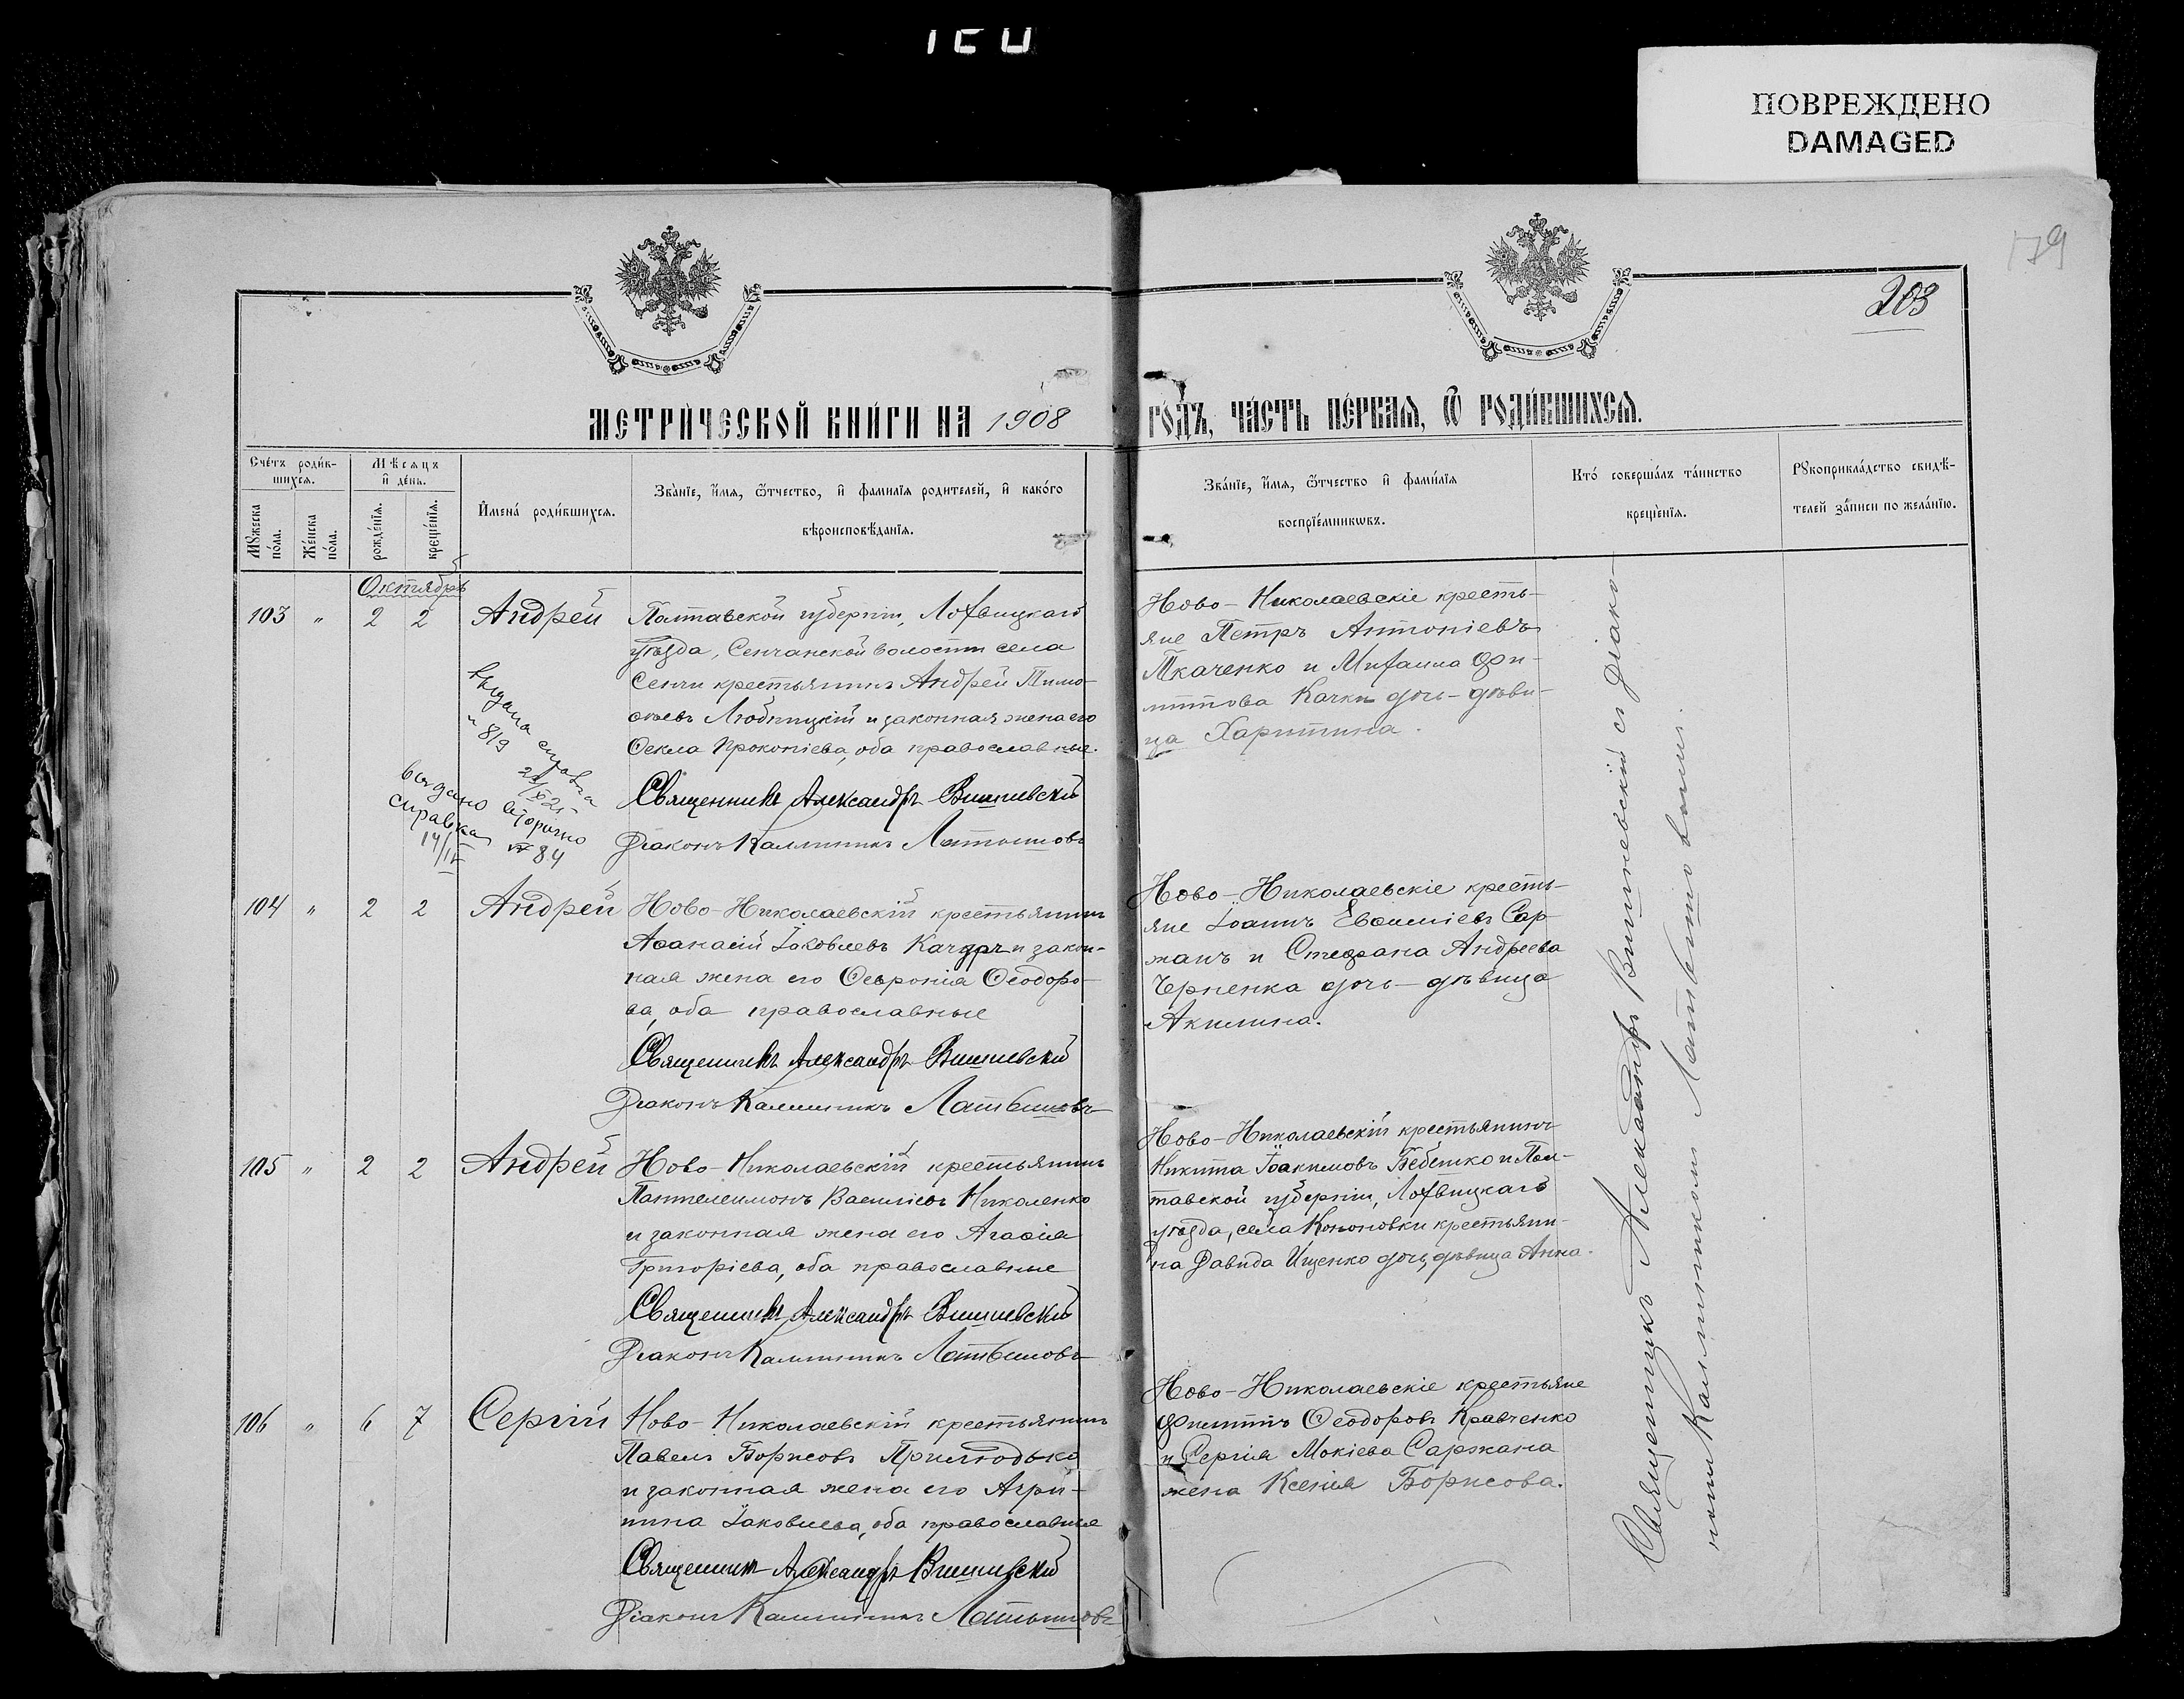 ПОВРЕЖДЕНО
DAMAGED
179
203
МЕТРИЧЕСКОЙ КНИГИ НА 1908 ГОДЪ, ЧАСТЬ ПЕРВАЯ, Ѿ РОДИВШИХСЯ.
Счетъ родив-
шихся.
Мужеска
пола.
Женска
пола.
Мѣсяцъ
и день.
рожденїя.
крещенїя.
Имена родившихся.
Званїе, имя, ѿтчество, и фамилїя родителей, и какого
вѣроисповѣданїя.
Званїе, имя, ѿтчество и фамилїя
воспрїемниковъ.
Кто совершалъ таинство
крещенїя.
Рукоприкладство свидѣ-
телей записи по желанїю.
Октябрь
103 " 2 2 Андрей
Полтавской губерніи, Лохвицкаго
уѣзда, Сенчанской волости села
Сенчи крестьянинъ Андрей Тимо-
ѳеевъ Любицкій и законная жена его
Ѳекла Прокопіева, оба православные.
Священникъ Александръ Вишневскій
Діаконъ Каллиникъ Латышовъ
выдана справка
н 819
выдано вторично
справка № 84
14/IV
Ново-Николаевскіе кресть-
яне Петръ Антоніевъ
Ткаченко и Михаила Фи-
липпова Качки дочь-дѣви-
ца Харитина.
104 " 2 2 Андрей
Ново-Николаевскій крестьянинъ
Аѳанасій Іаковлевъ и закон-
ная жена его Ѳеѵронія Ѳеодоро-
ва, оба православные
Священникъ Александръ Вишневскій
Діаконъ Каллиникъ Латышовъ
Ново-Николаевскіе кресть-
яне Іоаннъ Евѳиміевъ Сар-
жанъ и Стефана Андреева
Черненка дочь-дѣвица
Акилина.
105 " 2 2 Андрей
Ново-Николаевскій крестьянинъ
Пантелеимонъ Василіевъ Николенко
и законная жена его Агаѳія
Григоріева, оба православные
Священникъ Александръ Вишневскій
Діаконъ Каллиникъ Латышовъ
Ново-Николаевскій крестьянинъ
Никита Іоакимовъ Бебешко и Пол-
тавской губерніи, Лохвицкаго
уѣзда, села Кононовки крестьяни-
на Давида Ищенко дочь, дѣвица Анна.
106 " 6 7 Сергій
Ново-Николаевскій крестьянинъ
Павелъ Борисовъ Прилюдько
и законная жена его Агри-
пина Іаковлева, оба православные
Священникъ Александръ Вишневскій
Діаконъ Каллиникъ Латышовъ
Ново-Николаевскіе крестьяне
Филиппъ Ѳеодоровъ Кравченко
и Сергія Мокіева Саржана
жена Ксенія Борисова.
Священникъ Александръ Вишневскій съ діако-
номъ Каллиникомъ Латышовымъ.